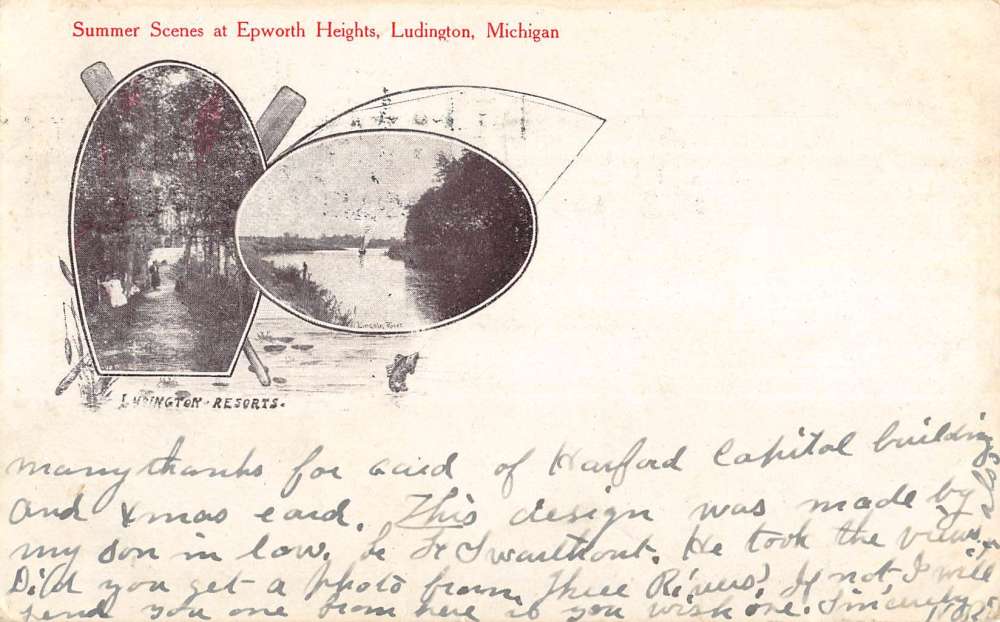 Summer Scenes at Epworth Heights, Ludington, Michigan
Lincoln River
LUDINGTON RESORTS.
many thanks for card of Harford Capitol building
and xmas card. This design was made by
my son in law. He took the views
Did you get a photo from Three Rivers? If not I will
send you one from here if you wish one. Sincerely